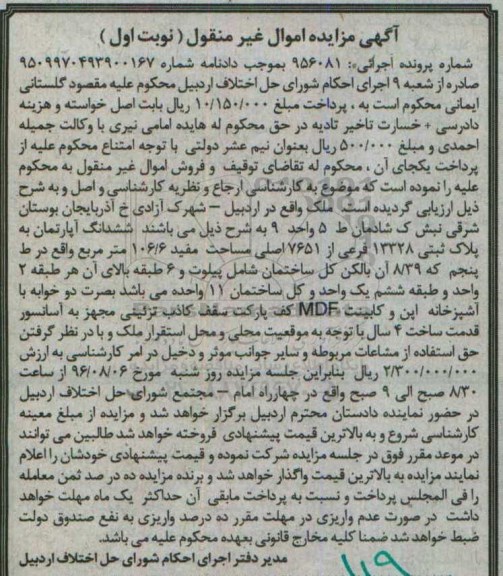 آگهی مزایده اموال غیر منقول ( نوبت اول )
شماره پرونده اجرائی: ۹۵۶۰۸۱ بموجب دادنامه شماره ۹۵۰۹۹۷۰۴۹۳۹۰۰۱۶۷
صادره از شعبه ۹ اجرای احکام شورای حل اختلاف اردبیل محکوم علیه مقصود گلستانی
ایمانی محکوم است به ، پرداخت مبلغ ۱۰/۱۵۰/۰۰۰ ریال بابت اصل خواسته و هزینه
دادرسی + خسارت تاخیر تادیه در حق محکوم له هایده امامی نیری با وکالت جمیله
احمدی و مبلغ ۵۰۰/۰۰۰ ریال بعنوان نیم عشر دولتی با توجه امتناع محکوم علیه از
پرداخت یکجای آن ، محکوم له تقاضای توقیف و فروش اموال غیر منقول به محکوم
علیه را نموده است که موضوع به کارشناسی ارجاع و نظریه کارشناسی و اصل و به شرح
ذیل ارزیابی گردیده است: ملک واقع در اردبیل – شهرک آزادی خ آذربایجان بوستان
شرقی نبش ک شادمان ط ۵ واحد ۹ به شرح ذیل می باشند ششدانگ آپارتمان به
پلاک ثبتی ۱۳۳۲۸ فرعی از ۷۶۵۱ اصلی مساحت مفید ۱۰۶/۶ متر مربع واقع در ط
پنجم که ۸/۳۹ آن بالکن کل ساختمان شامل پیلوت و ۶ طبقه بالای آن هر طبقه ۲
واحد و طبقه ششم یک واحد و کل ساختمان ۱۱ واحده می باشد بصرت دو خوابه با
آشپزخانه اپن و کابینت MDF کف پارکت سقف کاذب تزئینی مجهز به آسانسور
قدمت ساخت ۴ سال با توجه به موقعیت محلی و محل استقرار ملک و با در نظر گرفتن
حق استفاده از مشاعات مربوطه و سایر جوانب موثر و دخیل در امر کارشناسی به ارزش
۲/۳۰۰/۰۰۰/۰۰۰ ریال بنابراین جلسه مزایده روز شنبه مورخ ۹۶/۰۸/۰۶ از ساعت
۸/۳۰ صبح الی ۹ صبح واقع در چهارراه امام – مجتمع شورای حل اختلاف اردبیل
در حضور نماینده دادستان محترم اردبیل برگزار خواهد شد و مزایده از مبلغ معینه
کارشناسی شروع و به بالاترین قیمت پیشنهادی فروخته خواهد شد طالبین می توانند
در موعد مقرر فوق در جلسه مزایده شرکت نموده و قیمت پیشنهادی خودشان را اعلام
نمایند مزایده به بالاترین قیمت واگذار خواهد شد و برنده مزایده ده در صد ثمن معامله
را فی المجلس پرداخت و نسبت به پرداخت مابقی آن حداکثر یک ماه مهلت خواهد
داشت در صورت عدم واریزی در مهلت مقرر ده درصد واریزی به نفع صندوق دولت
ضبط خواهد شد ضمنا کلیه مخارج قانونی بعهده محکوم علیه می باشد.
مدیر دفتر اجرای احکام شورای حل اختلاف اردبیل